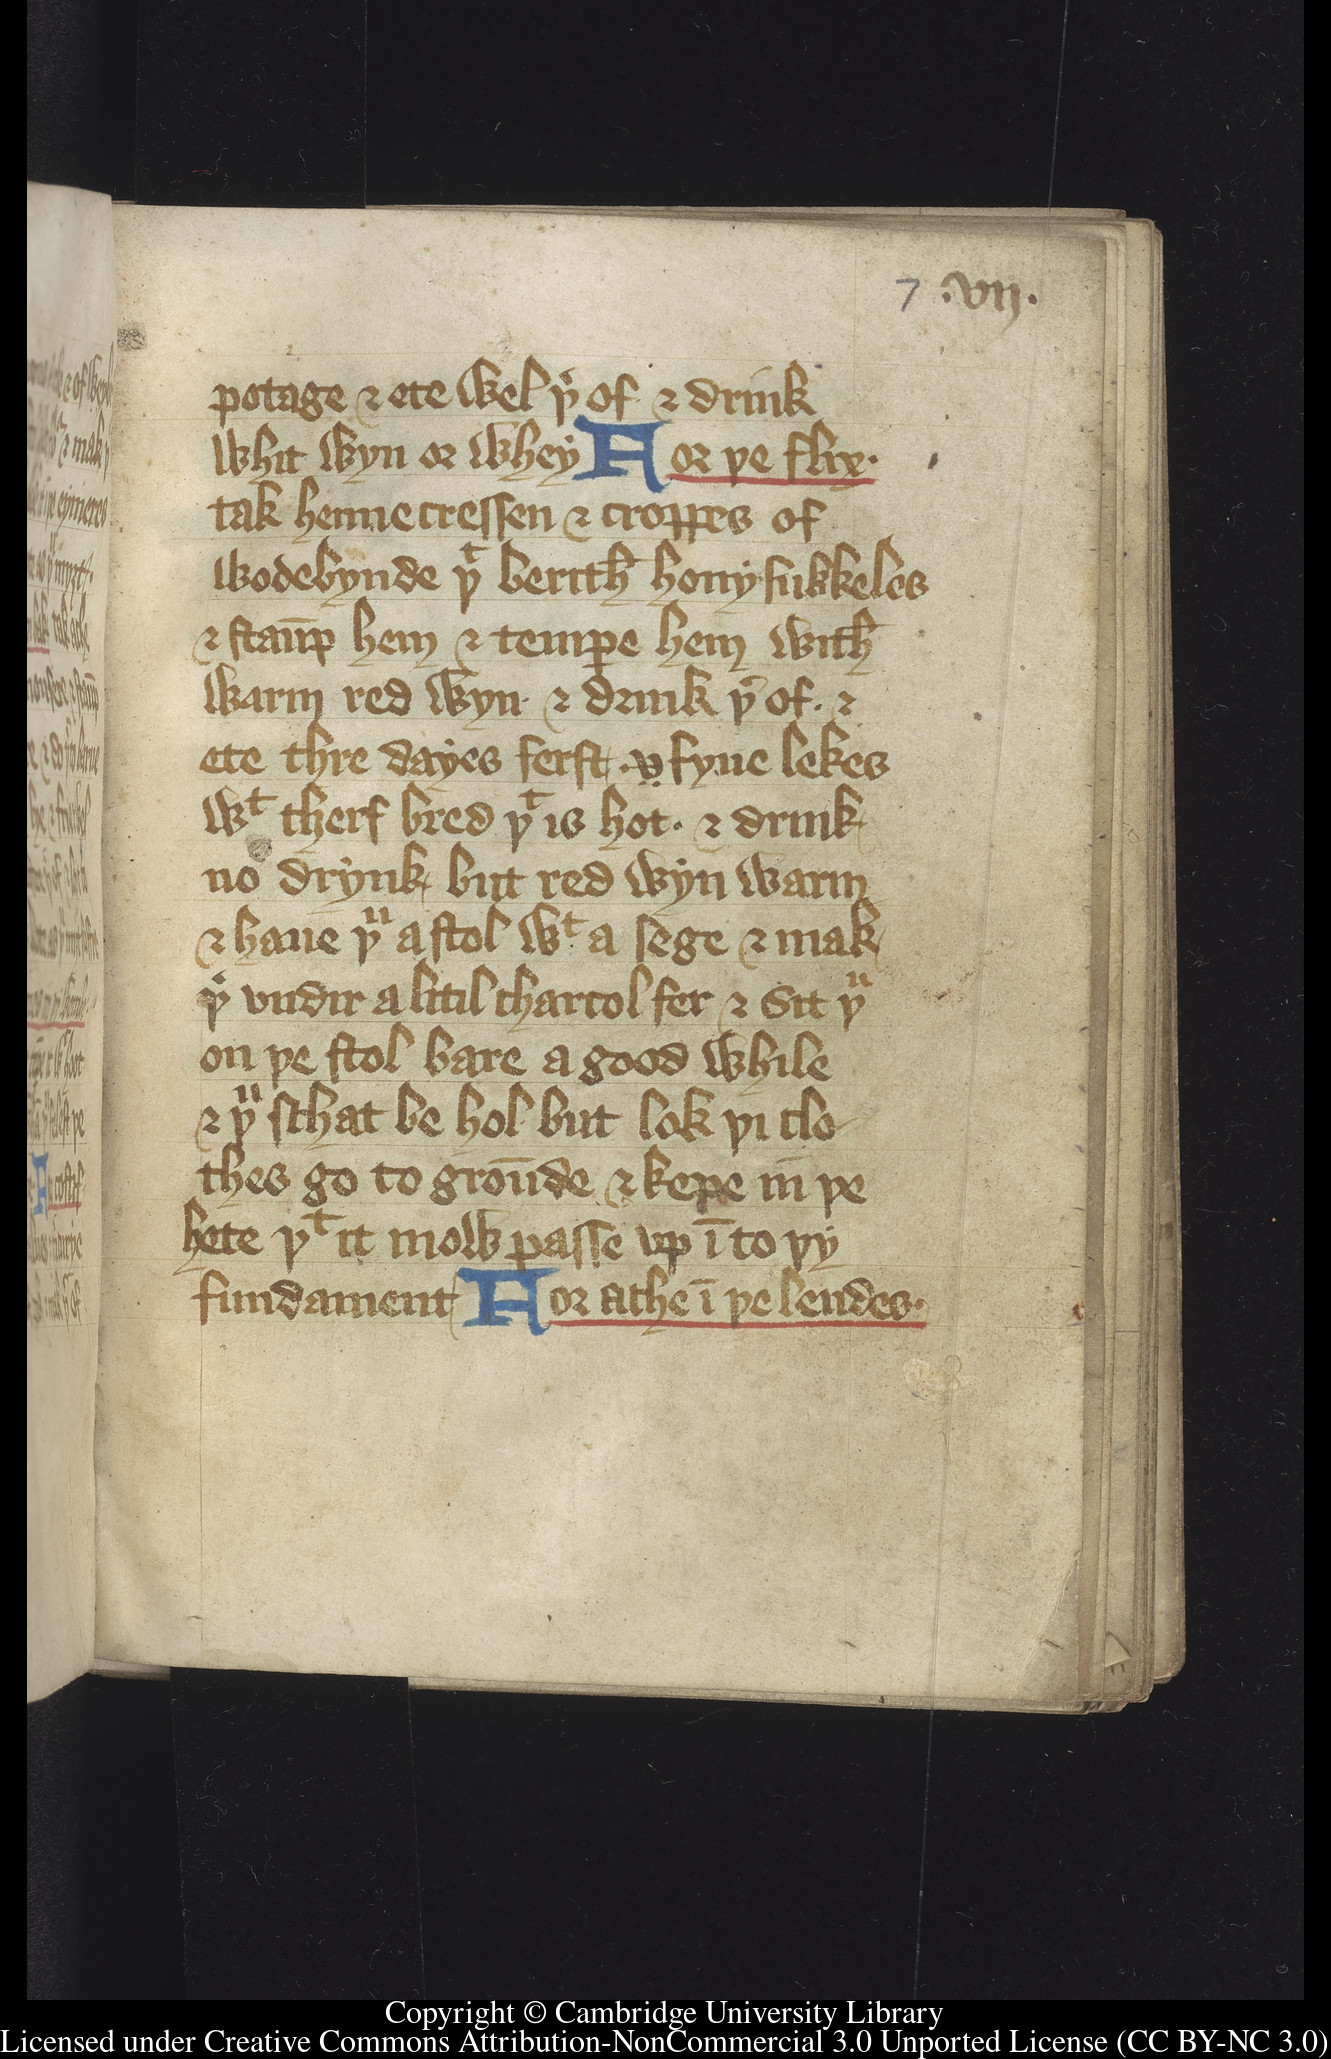 7 .vij.
potage ⁊ ete wel þͬ of ⁊ drink
whit wyn or whey For þe flix.
tak hennecressen ⁊ croppes of
wodebynde þͭ berith hony sukkeles
⁊ staūp hem ⁊ tempe hem with
warm red wyn ⁊ drink þͬ of. ⁊
ete thre dayes ferst .v. fyne lekes
wͭ therf bred þͭ is hot. ⁊ drink
no drynk but red wyn warm
⁊ haue þͧ a stol wͭ a sege ⁊ mak
þͬ vndir a litil charcol fer ⁊ sit þͧ
on þe stol bare a good while
⁊ þͧ schat be hol but lok þi clo
thes go to groūde ⁊ kepe in þe
hete þͭ it mow passe vp ī to þy
fundament For ache ī þe lendes.
Copyright © Cambridge University Library
Licensed under Creative Commons Attribution-NonCommercial 3.0 Unported License (CC BY-NC 3.0)